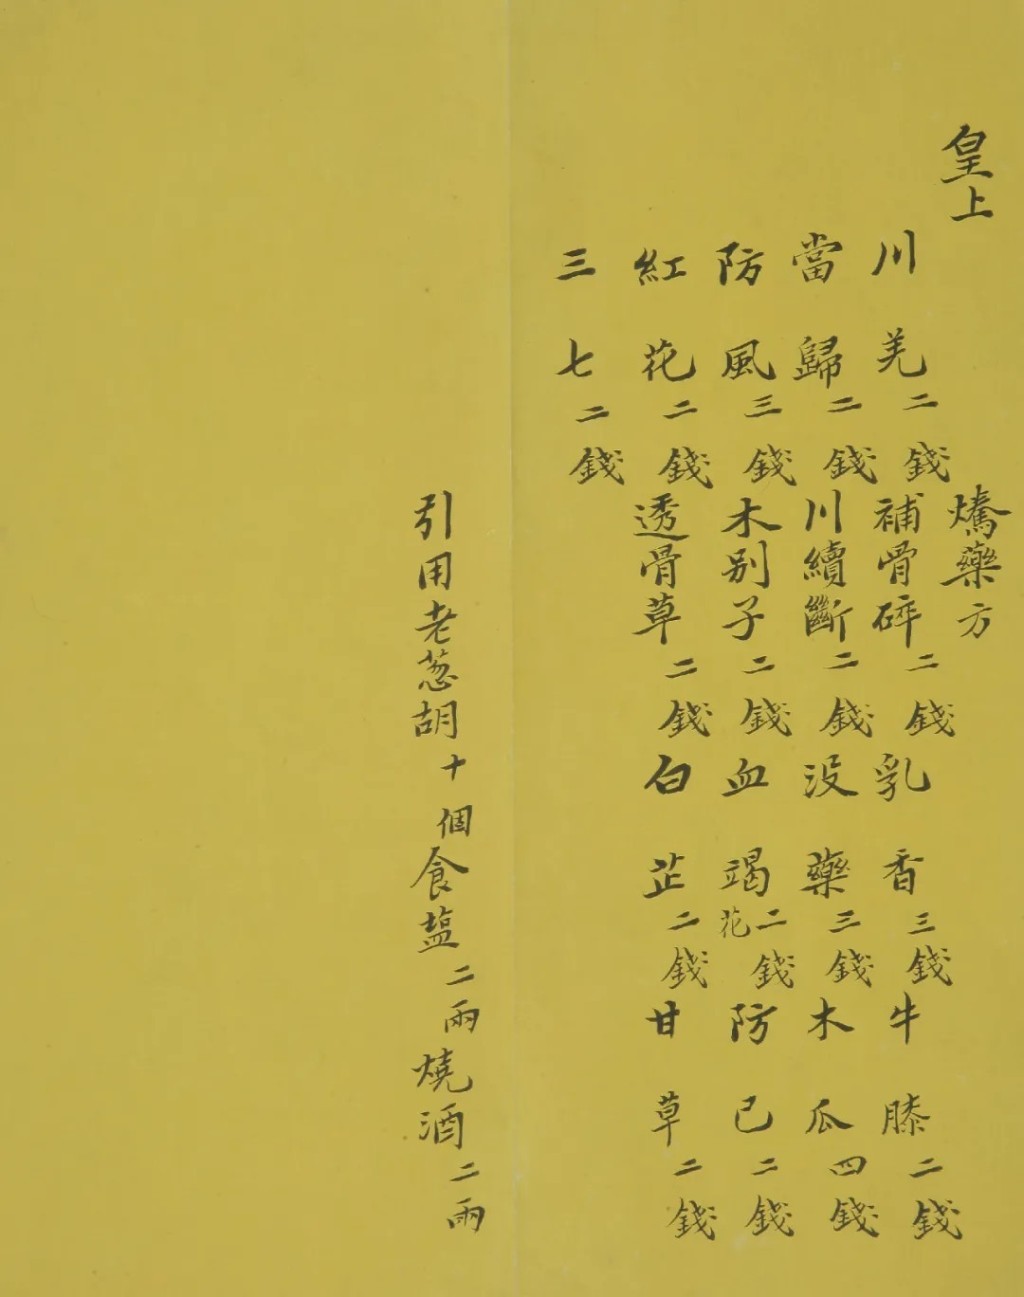 皇上
藥方
川羌二錢 補骨碎二錢 乳香三錢 牛膝二錢
當歸二錢 川續斷二錢 没藥三錢 木瓜四錢
防風三錢 木别子二錢 血竭花二錢 防已二錢
紅花二錢 透骨草二錢 白芷二錢 甘草二錢
三七二錢
引用老葱胡十個食塩二兩燒酒二兩